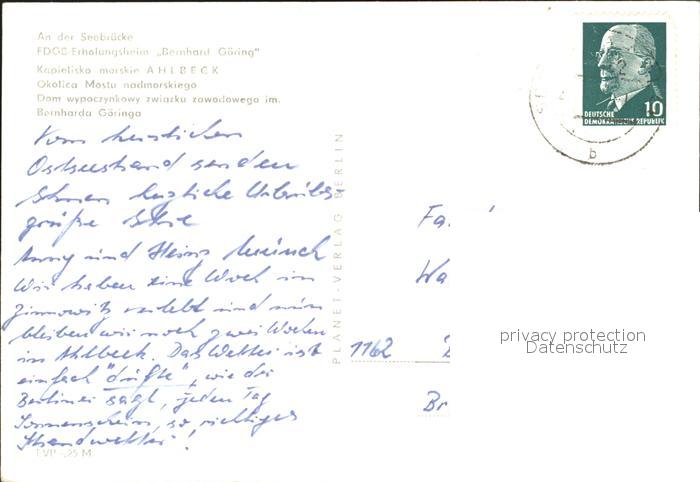 An der Seebrücke
FDGB-Erholungsheim „Bernhard Göring"
Kąpielisko morskie AHLBECK
Okolica Mostu nadmorskiego
Dom wypoczynkowy związku zawodowego im.
Bernharda Göringa
Vom herrlichen
Ostseestrand senden
Ihnen herzliche Urlaubs-
grüße Ihre
Anny und Heinz Münch
Wir haben eine Woch in
Zinnowitz verlebt und nun
bleiben wir noch zwei Wochen
in Ahlbeck. Das Wetter ist
einfach "dufte", wie der
Berliner sagt, jeden Tag
Sonnenschein, so richtiges
Strandwetter!
EVP -,25 M
PLANET-VERLAG BERLIN
DEUTSCHE
DEMOKRATISCHE REPUBLIK
10
b
Fa
Wa
1162
Br
privacy protection
Datenschutz